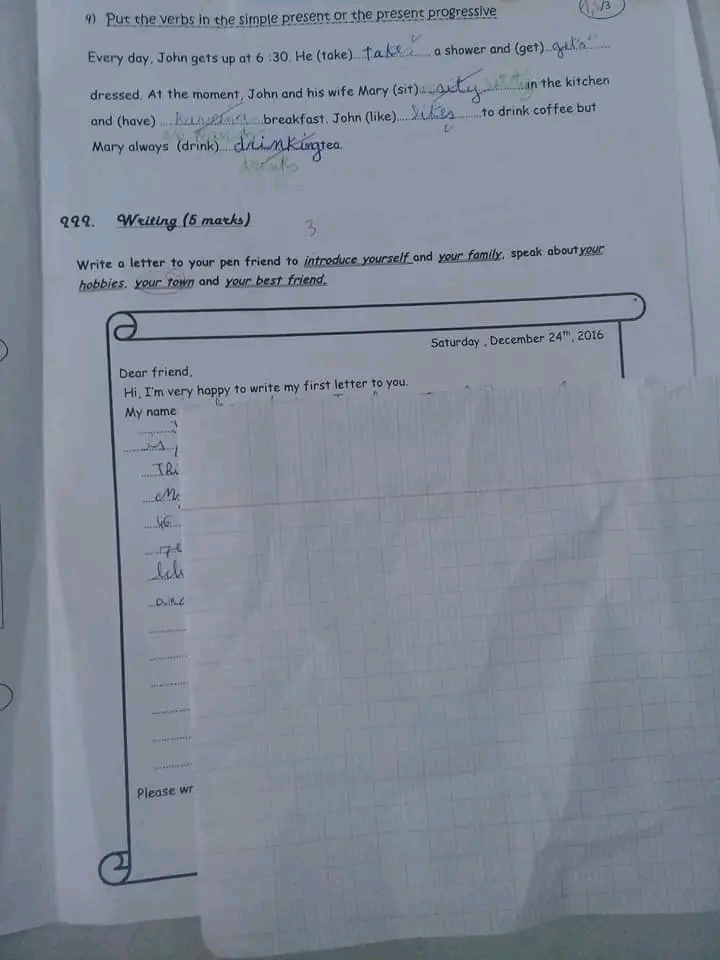 4) Put the verbs in the simple present or the present progressive
/3
Every day, John gets up at 6 :30. He (take) takes a shower and (get) gets
dressed. At the moment, John and his wife Mary (sit) in the kitchen
and (have) having breakfast. John (like) likes to drink coffee but
Mary always (drink) drinking tea.
drinks
Writing (5 marks)
3
Write a letter to your pen friend to introduce yourself and your family, speak about your
hobbies, your town and your best friend.
Saturday , December 24th, 2016
Dear friend,
Hi, I'm very happy to write my first letter to you.
My name
Please wr